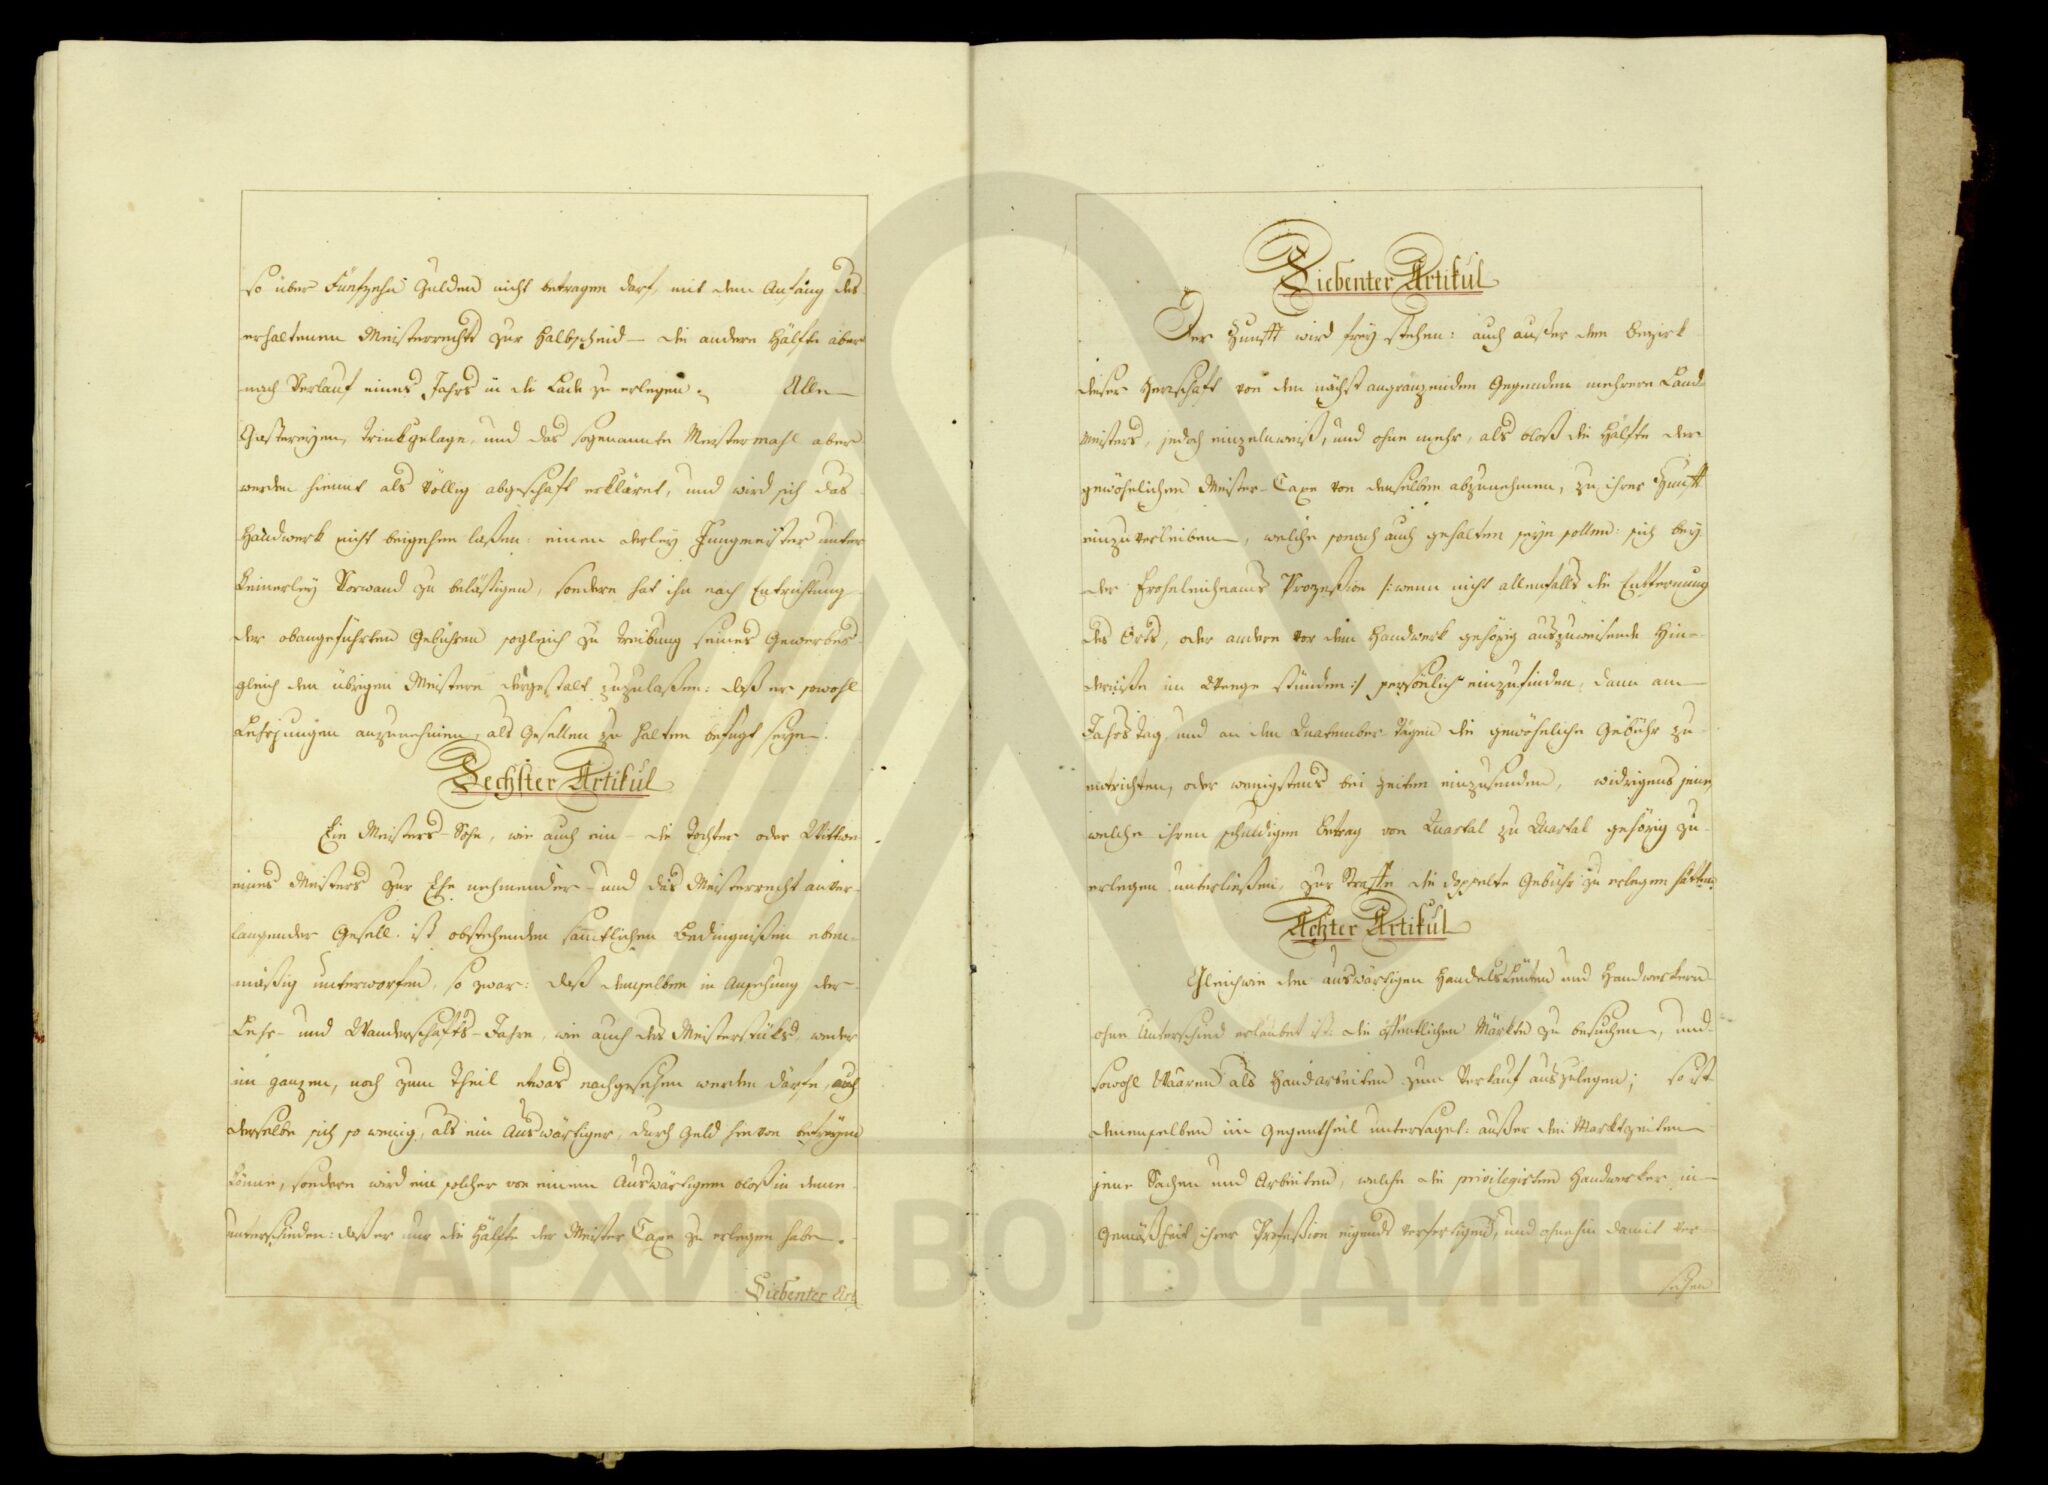 so über Fünfzehn Gulden nicht betragen darf, mit dem Anfang des
erhaltenen Meisterrechts zur Halbscheid – die andere Hälfte aber
nach Verlauf eines Jahrs in die Lade zu erlegen. Alle
Gastereyen, Trinkgelage, und das sogenannte Meistermahl aber
werden hiemit als völlig abgeschaft erkläret, und wird sich das
Handwerk nicht beigehen laßen: einen derley Jungmeister unter
keinerley Vorwand zu belästigen, sondern hat ihn nach Entrichtung
der obangeführten Gebühren sogleich zu Treibung seines Gewerbes
gleich den übrigen Meistern dergestalt zuzulaßen: daß er sowohl
Lehrjungen anzunehmen, als Gesellen zu halten befugt seye.
Sechster Artikul
Ein Meisters-Sohn, wie auch ein – die Tochter oder Wittwe
eines Meisters zur Ehe nehmender – und das Meisterrecht anver-
langender Gesell ist obstehenden sämtlichen Bedingnißen eben-
mäßig unterworfen, so zwar: daß demselben in Ansehung der
Lehr- und Wanderschafts-Jahre, wie auch des Meisterstüks, weder
im ganzen, noch zum Theil etwas nachgesehen werden dürfe, auch
derselbe sich so wenig, als ein Auswärtiger, durch Geld hievon befreyen
könne, sondern wird ein solcher von einem Auswärtigen bloß in deme
unterschieden: daß er nur die Hälfte der Meister Taxe zu erlegen habe.
Siebenter Art
Siebenter Artikul
Der Zunft wird frey stehen: auch außer dem Bezirk
dieser Herrschaft von den nächst angränzenden Gegenden mehrere Land-
meisters, jedoch einzelnweiß, und ohne mehr, als bloß die Hälfte der
gewöhnlichen Meister-Taxe von denselben abzunehmen, zu ihrer Zunft
einzuverleiben, welche sonach auch gehalten seyn sollen: sich bey
der Frohnleichnams Prozeßion /: wenn nicht allenfalls die Entfernung
des Orts, oder andere vor dem Handwerk gehörig auszuweisende Hin-
derniße im Weege stünden :/ persönlich einzufinden, dann am
Jahrs Tag, und an den Quatember Tägen die gewöhnliche Gebühr zu
entrichten, oder wenigstens bei Zeiten einzusenden, widrigens jene,
welche ihren schuldigen Betrag von Quartal zu Quartal gehörig zu
erlegen unterließen, zur Straffe die doppelte Gebühr zu erlegen hätten.
Achter Artikul
Gleichwie den auswärtigen Handelsleuten und Handwerkern
ohne Unterschied erlaubet ist: die öffentlichen Märkte zu besuchen, und
sowohl Waaren als Handarbeiten zum Verkauf auszulegen; so ist
denenselben im Gegentheil untersaget: außer den Marktzeiten
jene Sachen und Arbeiten, welche die privilegirten Handwerker in
Gemäßheit ihrer Profeßion eigends verfertigen, und ohnehin damit ver-
sehen
АРХИВ ВОЈВОДИНЕ